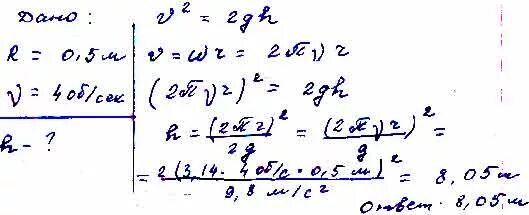 Дано:
R = 0,5 м
ν = 4 об/сек
h - ?
v² = 2gh
v = ωr = 2πνr
(2πνr)² = 2gh
h = (2πr)²/2g = (2πνr)²/g =
= 2(3,14 · 4 об/с · 0,5 м)²/9,8 м/с² = 8,05м
Ответ: 8,05м